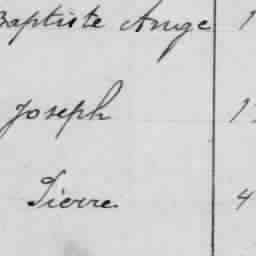 Baptiste Ange 1
Joseph 1
Pierre 4